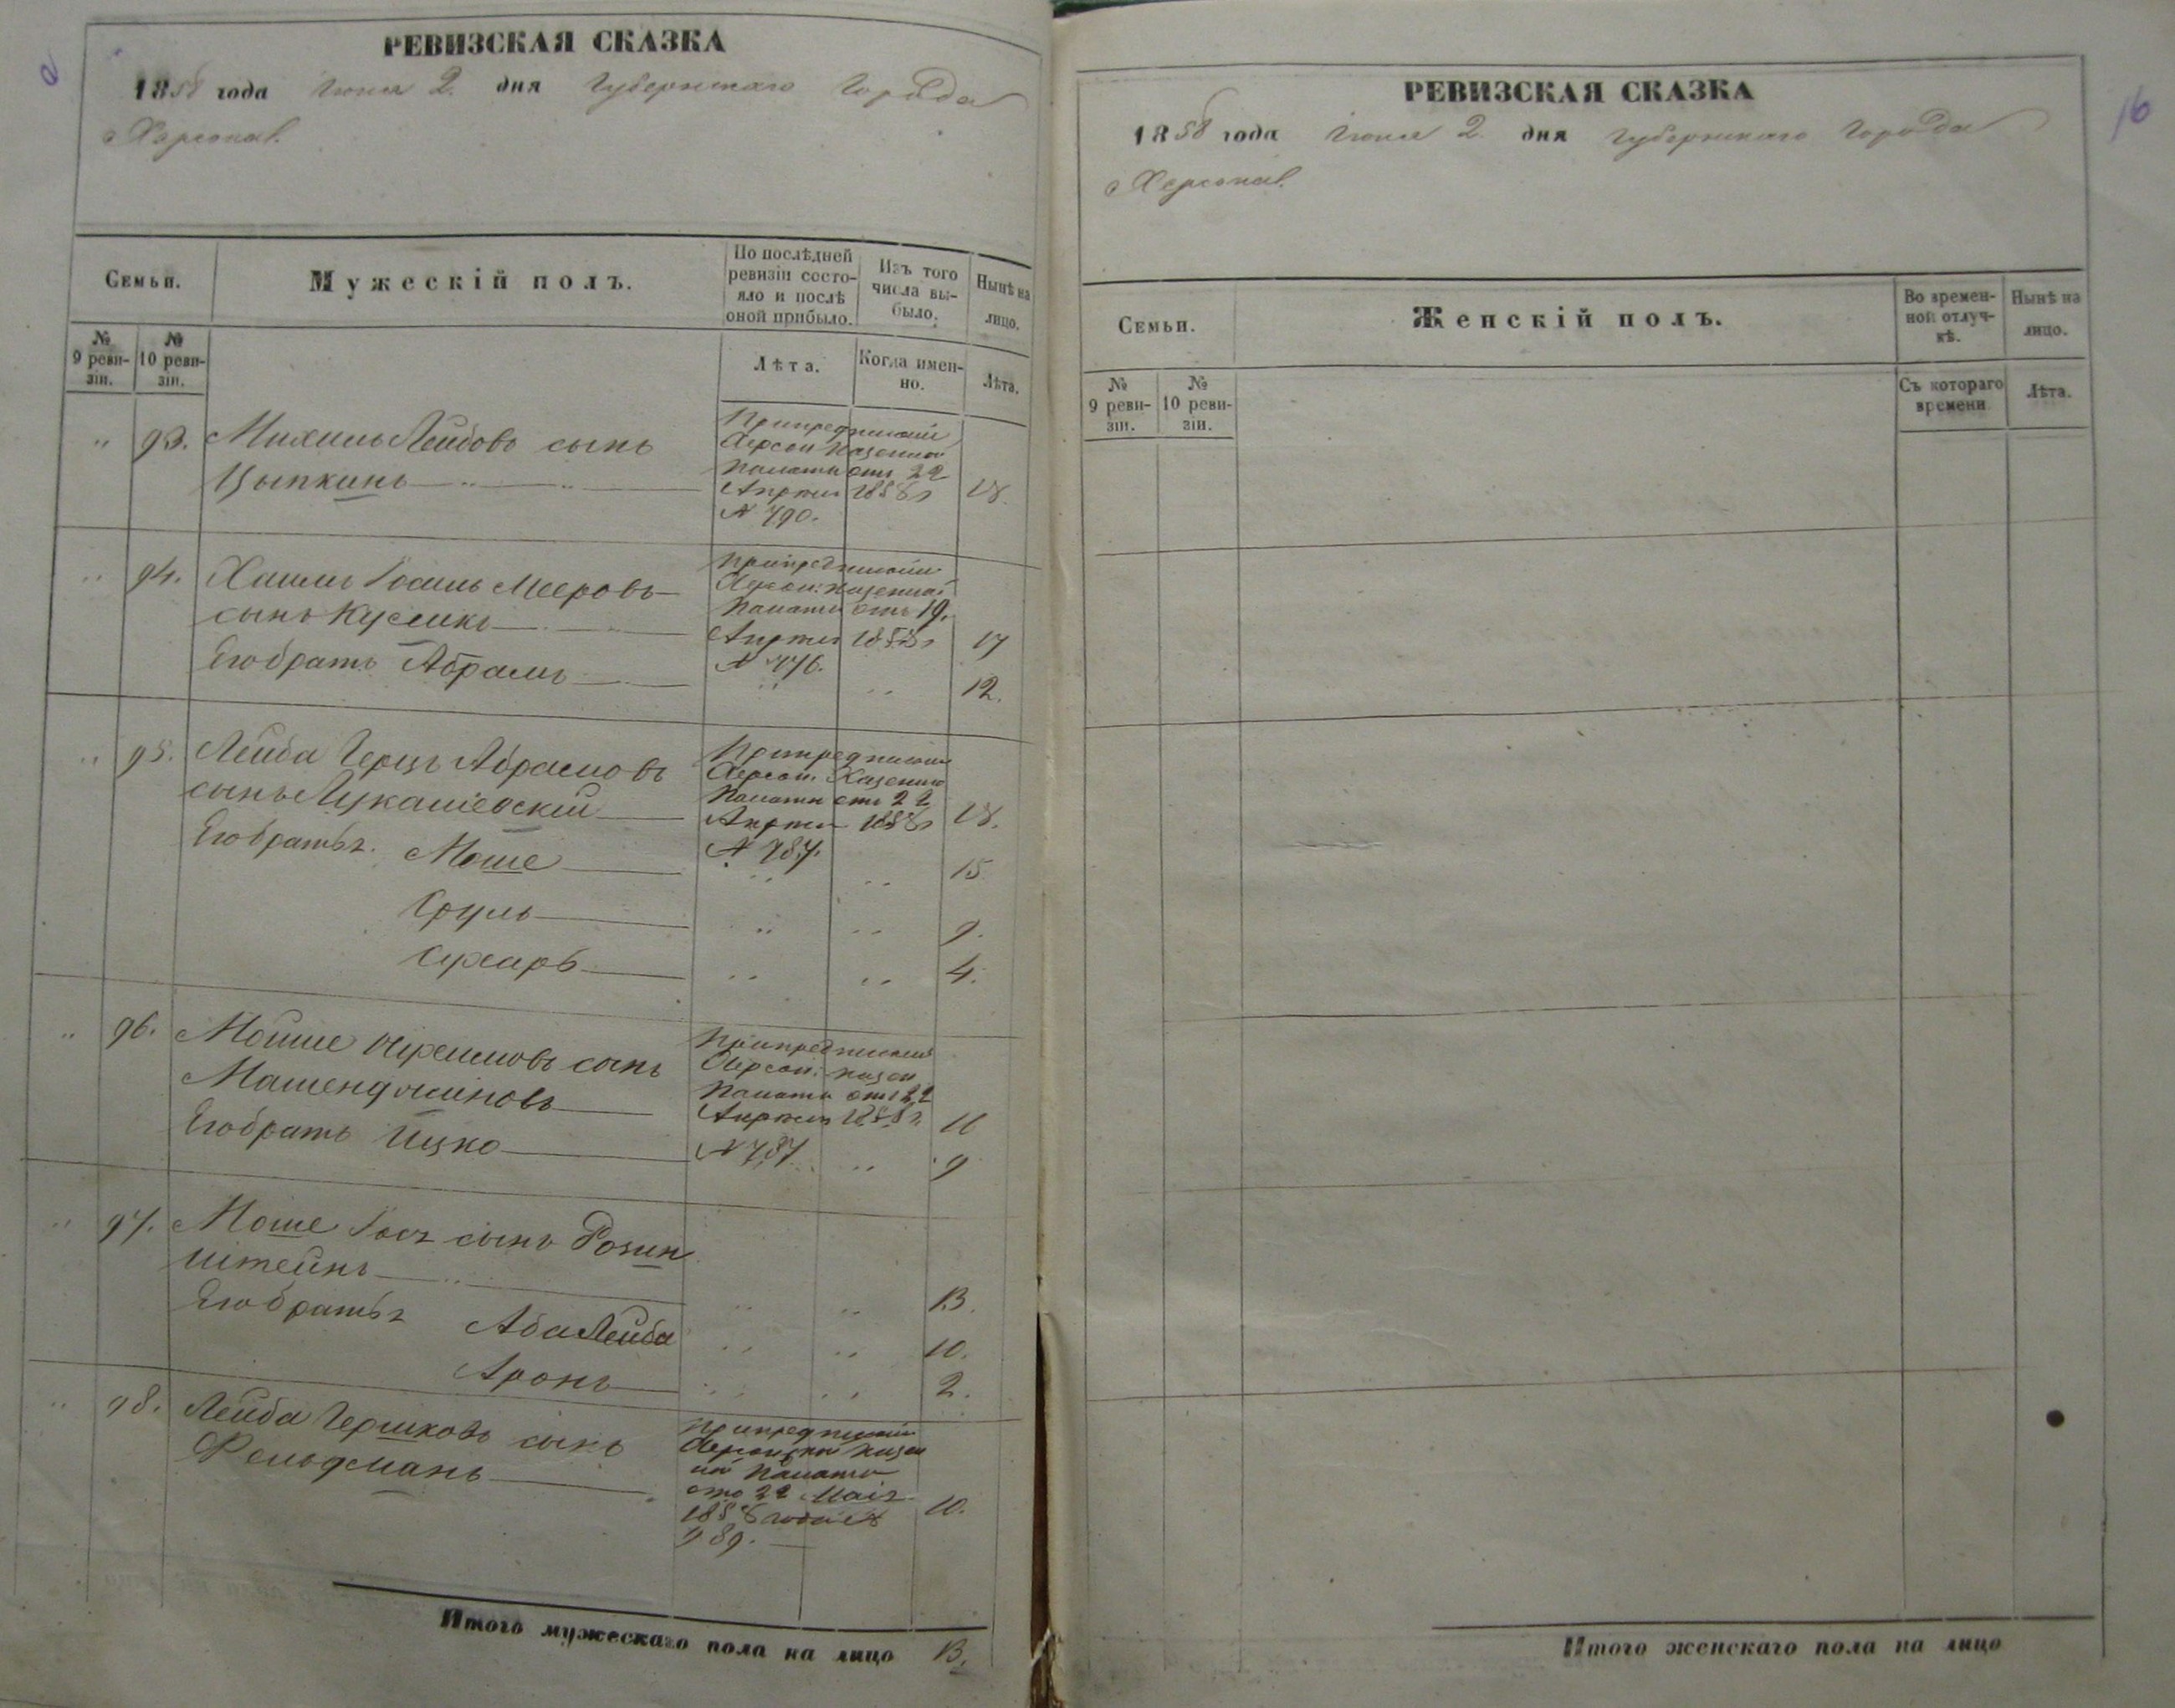 РЕВИЗСКАЯ СКАЗКА
1858 года Июня 2. дня Губернскаго Города
Херсона.
Семьи.
Мужескій полъ.
По послѣдней ревизіи состояло и послѣ оной прибыло.
Изъ того числа выбыло.
Нынѣ на лицо.
№ 9 ревизіи.
№ 10 ревизіи.
Лѣта.
Когда именно.
Лѣта.
" 93. Михель Лейбовъ сынъ
Цыпкинъ 18.
При предписаніи
Херсон Казенной
Палаты отъ 22
Апреля 1858 г
N 790.
" 94. Хаимъ Іосиль Мееровъ
сынъ Кусликъ 17
Его братъ Абрамъ 12.
При предписаніи
Херсон: Казенной
Палаты отъ 19.
Апреля 1858 г
N 776.
" 95. Лейба Герцъ Абрамовъ
сынъ Лукашевскій 18.
Его братья. Моше 15
Сруль 9.
Сухаръ 4.
При предписаніи
Херсон. Казенной
Палаты отъ 22
Апреля 1858 г
N 787.
" 96. Мойше сынъ
16
Его братъ Ицко 9
При предписаніи
Херсон: Казен
Палаты отъ 22
Апреля 1858 г.
N 787
" 97. Моше Іосъ сынъ Розин
штейнъ 13.
Его братья Аба Лейба 10.
Аронъ 2.
" 98. Лейба Гершковъ сынъ
Фельдманъ 10.
При предписаніи
Херсонской Казен
ной Палаты
отъ 22 Маія
1858 года N
989.
Итого мужескаго пола на лицо 13.
РЕВИЗСКАЯ СКАЗКА
16
1858 года Июня 2. дня Губернскаго Города
Херсона.
Семьи.
Женскій полъ.
Во временной отлучкѣ.
Нынѣ на лицо.
№ 9 ревизіи.
№ 10 ревизіи.
Съ котораго времени
Лѣта.
Итого женскаго пола на лицо